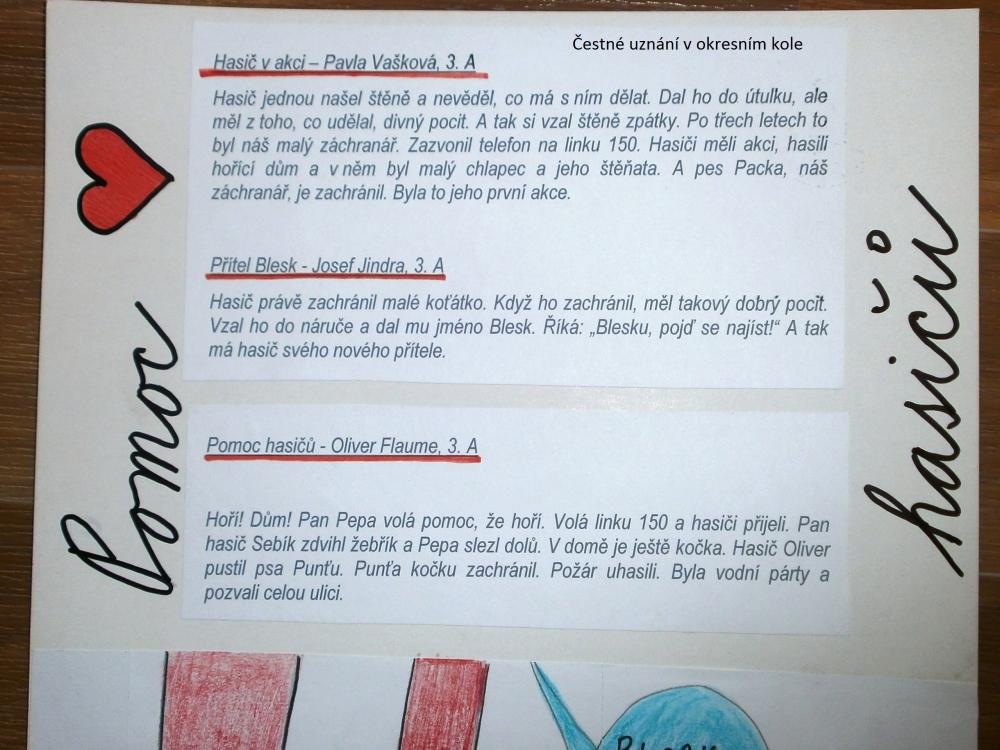 Čestné uznání v okresním kole
Hasič v akci – Pavla Vašková, 3. A
Hasič jednou našel štěně a nevěděl, co má s ním dělat. Dal ho do útulku, ale
měl z toho, co udělal, divný pocit. A tak si vzal štěně zpátky. Po třech letech to
byl náš malý záchranář. Zazvonil telefon na linku 150. Hasiči měli akci, hasili
hořící dům a v něm byl malý chlapec a jeho štěňata. A pes Packa, náš
záchranář, je zachránil. Byla to jeho první akce.
Přítel Blesk - Josef Jindra, 3. A
Hasič právě zachránil malé koťátko. Když ho zachránil, měl takový dobrý pocit.
Vzal ho do náruče a dal mu jméno Blesk. Říká: „Blesku, pojď se najíst!“ A tak
má hasič svého nového přítele.
Pomoc hasičů - Oliver Flaume, 3. A
Hoří! Dům! Pan Pepa volá pomoc, že hoří. Volá linku 150 a hasiči přijeli. Pan
hasič Sebík zdvihl žebřík a Pepa slezl dolů. V domě je ještě kočka. Hasič Oliver
pustil psa Punťu. Punťa kočku zachránil. Požár uhasili. Byla vodní párty a
pozvali celou ulici.
Pomoc
hasičů